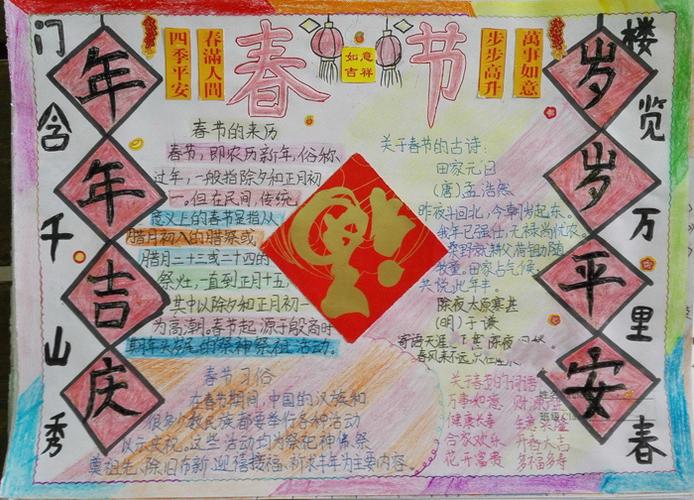 春节
四季平安
春滿人間
如意
吉祥
步步高升
萬事如意
门含千山秀
年年吉庆
岁岁平安
楼览万里春
春节的来历
春节,即农历新年,俗称
过年,一般指除夕和正月初
一。但在民间,传统
意义上的春节是指从
腊月初八的腊祭或
腊月二十三或二十四的
祭灶,一直到正月十五,
其中以除夕和正月初一
为高潮。春节起源于殷商时
期年头岁尾的祭神祭祖活动。
春节习俗
在春节期间,中国的汉族和
很多少数民族都要举行各种活动
以示庆祝。这些活动均为祭祀神佛、祭
奠祖先、除旧布新、迎禧接福、祈求丰年为主要内容
关于春节的古诗:
田家元日
(唐)孟浩然
昨夜斗回北,今朝岁起东。
我年已强仕,无禄尚忧农。
桑野就耕父,荷锄随
牧童。田家占气候,
共说此年丰。
除夜太原寒甚
(明)于谦
寄语天涯
春风来不远,只在
关于春节的词语
万事如意
健康长寿
合家欢乐 开春大吉
花开富贵 多福多寿